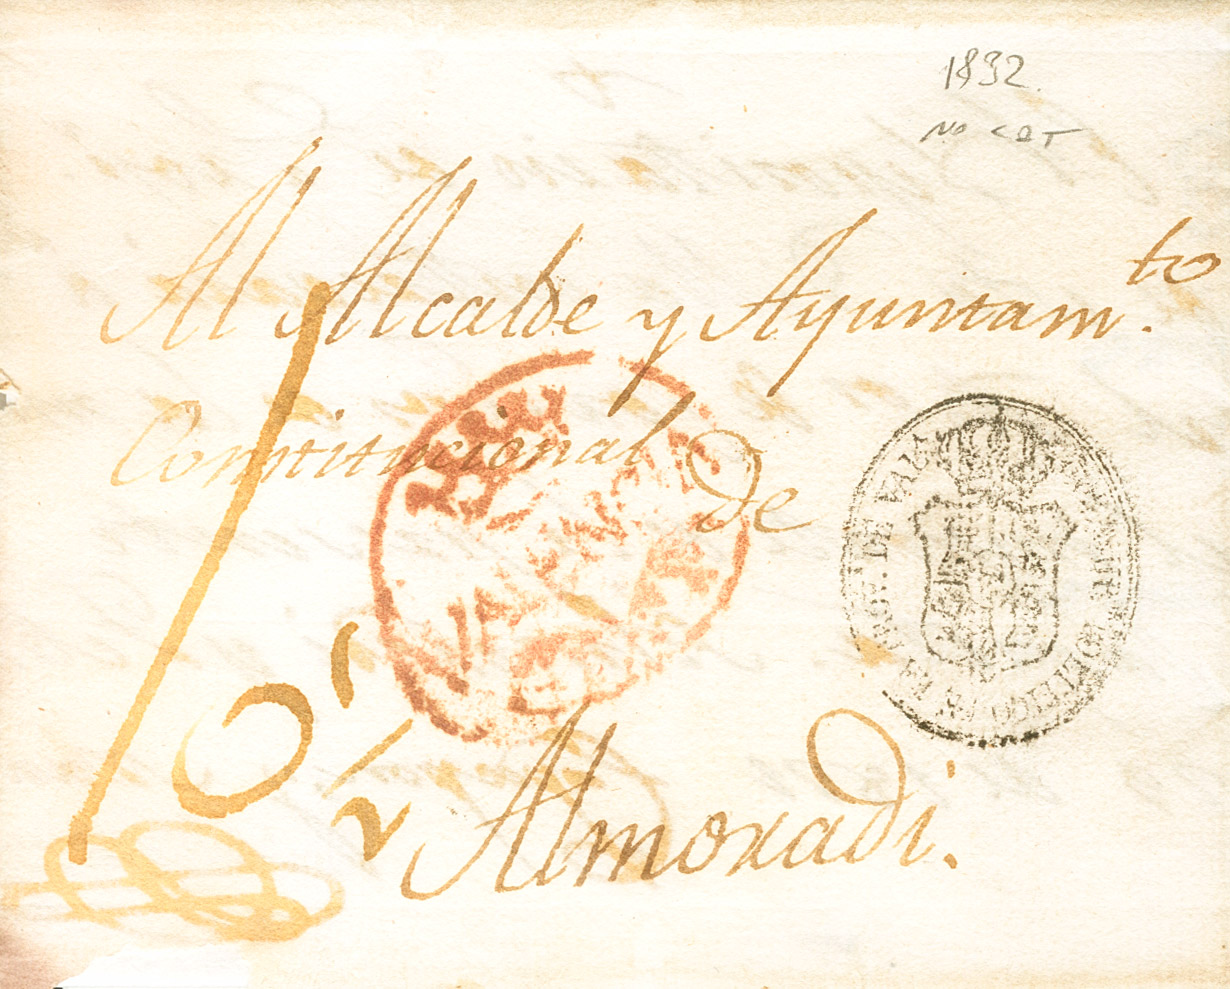 1832
NO CAT
Al Alcalde y Ayuntam.to
Constitucional de
10 1/2
Almoradi.
VALENCIA